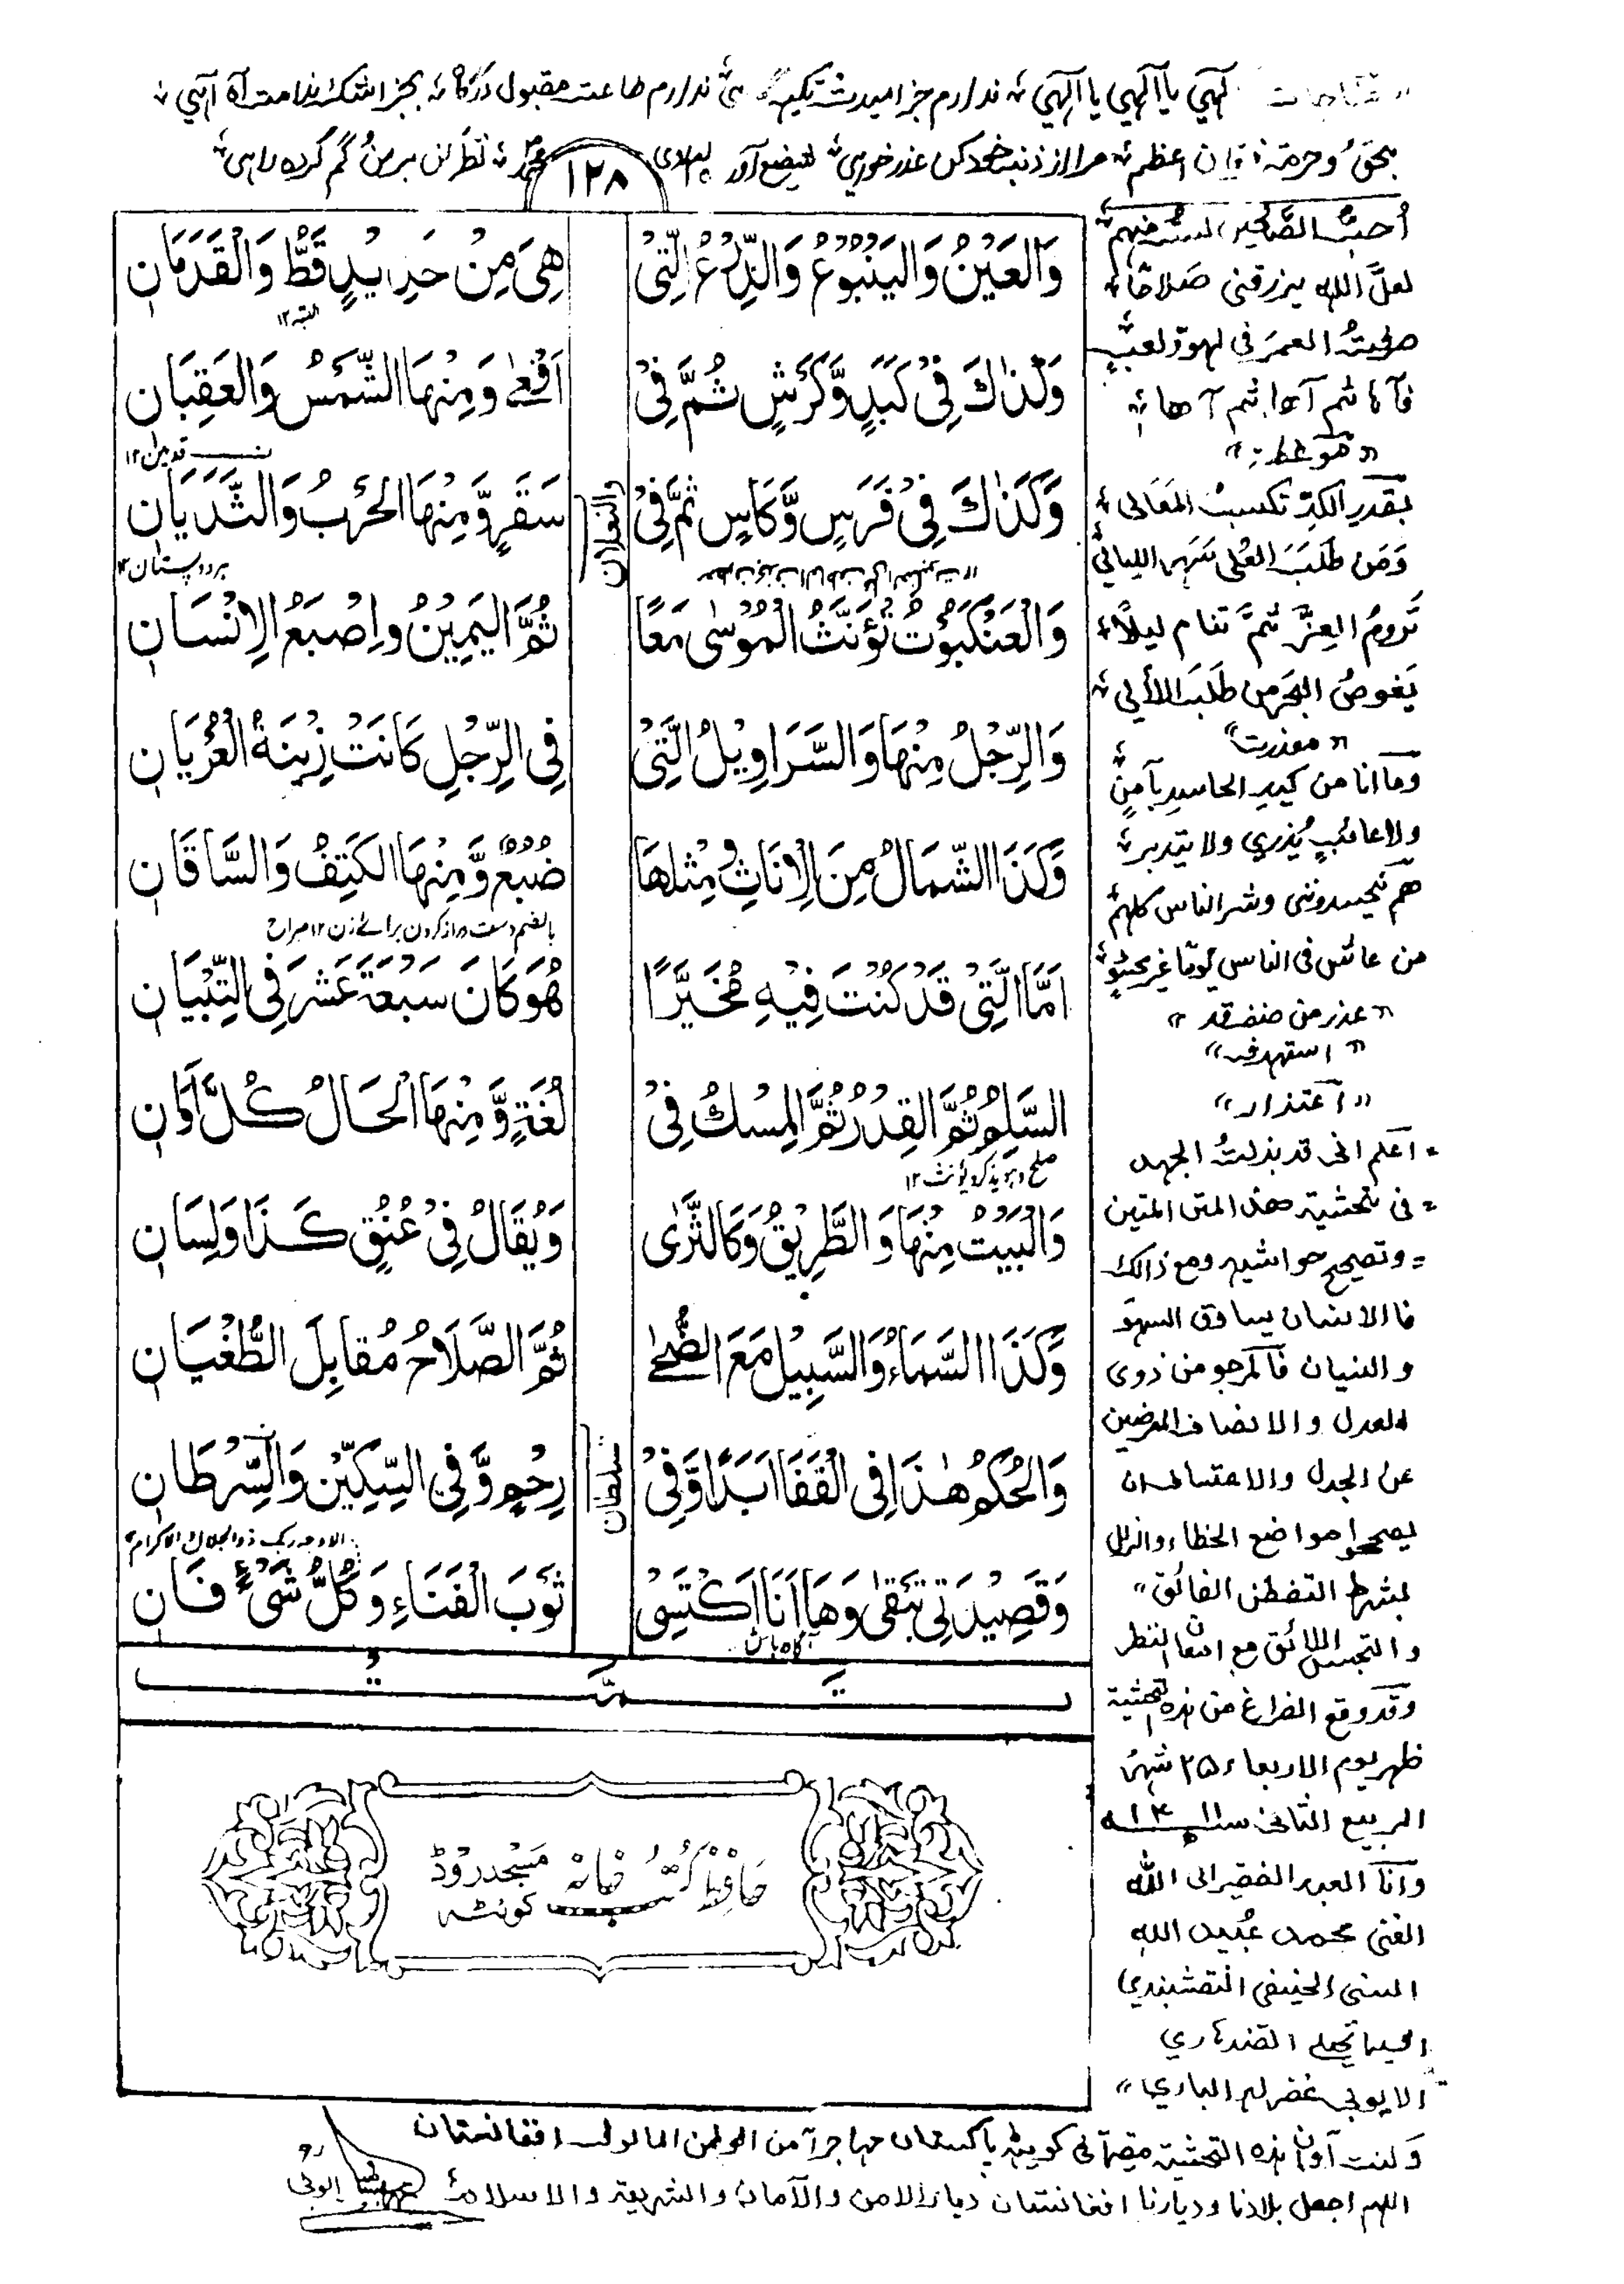 الٰهي يا الٰهي يا الٰهي ندارم جز اميدت تكيه ندارم طاعت مقبول درگاه بجز اشك ندامت آه آهي
بحق وحرمة اعظم مرا از ذنب خود كن عذر خواهي نظر كن بر من گم كرده راهي
١٢٨
وَالعَيْنُ وَاليَنْبُوْعُ وَالدِّرْعُ الَّتِيْ هِيَ مِنْ حَدِيْدٍ قَطُّ وَالْقَدَمَانِ
وَكَذَاكَ فِيْ كَبَدٍ وَّكَرْشٍ ثُمَّ فِيْ اَفْعٰى وَمِنْهَا الشَّمْسُ وَالعَقِبَانِ
قدمين ١٢
وَكَذَاكَ فِيْ فَرَسٍ وَّكَاسٍ ثُمَّ فِيْ سَقَرٍ وَّمِنْهَا الحَرْبُ وَالثَّدَيَانِ
والنعلان
هر دو پستان ١٢
وَالْعَنْكَبُوْتُ تُؤَنَّثُ الْمُوْسٰى مَعًا ثُمَّ اليَمِيْنُ وَاِصْبَعُ الْاِنْسَانِ
وَالرِّجْلُ مِنْهَا وَالسَّرَاوِيْلُ الَّتِيْ فِي الرِّجْلِ كَانَتْ زِيْنَةُ الْعُرْيَانِ
وَّكَذَا الشِّمَالُ مِنَ الْاِنَاثِ وَمِثْلُهَا ضَبُعٌ وَّمِنْهَا الكَتِفُ وَالسَّاقَانِ
بالضم دست دراز كردن برائے زدن ١٢ صراح
اَمَّا الَّتِيْ قَدْ كُنْتَ فِيْهِ مُخَيَّرًا هُوَ كَانَ سَبْعَةَ عَشَرَ فِي التِّبْيَانِ
السَّلَمُ ثُمَّ القِدْرُ ثُمَّ المِسْكُ فِيْ لُغَةٍ وَّمِنْهَا الْحَالُ كُلَّ اَوَانِ
وَالْبَيْتُ مِنْهَا وَالطَّرِيْقُ وَكَالثَّرٰى وَيُقَالُ فِيْ عُنُقٍ كَذَا وَلِسَانِ
وَّكَذَا السَّمَاءُ وَالسَّبِيْلُ مَعَ الضُّحٰى ثُمَّ الصَّلَاحُ مُقَابِلَ الطُّغْيَانِ
وَالْحُكْمُ هٰذَا فِي الْقَفَا اَبَدًا وَّفِيْ رِحْمٍ وَّفِي السِّكِّيْنِ وَالسَّرْطَانِ
سلطان
وَقَصِيْدَتِيْ تَبْقٰى وَهَا اَنَا اَكْتَسِيْ ثَوْبَ الْفَنَاءِ وَكُلُّ شَيْءٍ فَانِ
آگاه باش
تَمَّتْ
حافظ كتب خانه مسجد روڈ
كوئٹہ
أحبُّ الصالحين لست منهم
لعلَّ الله يرزقني صلاحا
صرفت العمر في لهو ولعب
فآها ثم آها ثم آها
"موعظة"
بقدر الكدّ تكسبُ المعالى
وَمَن طَلَبَ العُلى سَهِر الليالي
تَرومُ العِزَّ ثمَّ تنام ليلاً
يَغوصُ البحر من طَلَبَ اللآلي
"معذرت"
وما انا من كيدِ الحاسدِ بآمنٍ
ولا عائبٍ يُزري ولا يتدبر
هم يحسدونني وشر الناس كلهم
من عاش في الناس يومًا غير محسودٍ
"عذر من صنف قد"
"استهدف"
"اعتذار"
اعلم انى قد بذلتُ الجهد
فى تحشية هذا المتن المتين
وتصحيح حواشيه ومع ذالك
فالانسان يساوق السهو
والنسيان فالمرجو من ذوى
العدل والانصاف المعرضين
عن الجدل والاعتساف ان
يصححوا مواضع الخطاء والزلل
بشرط التفطن الفائق
والتجسس اللائق مع اتقان النظر
وقد وقع الفراغ من هذه التحشية
ظهر يوم الاربعاء ٢٥ شهر
الربيع الثانى سنة ١٤١١ ه
وأنا العبد الفقير الى الله
الغنى محمد عبيد الله
السنى الحنفى النقشبندي
القندهاري
الايوبي غفر له الباري
وكنت آوان هذه التحشية مقيما فى كويته پاكستان مهاجرا من الوطن المالوف افغانستان
اللهم اجعل بلادنا وديارنا افغانستان ديار الامن والآمان والشريعة والاسلام